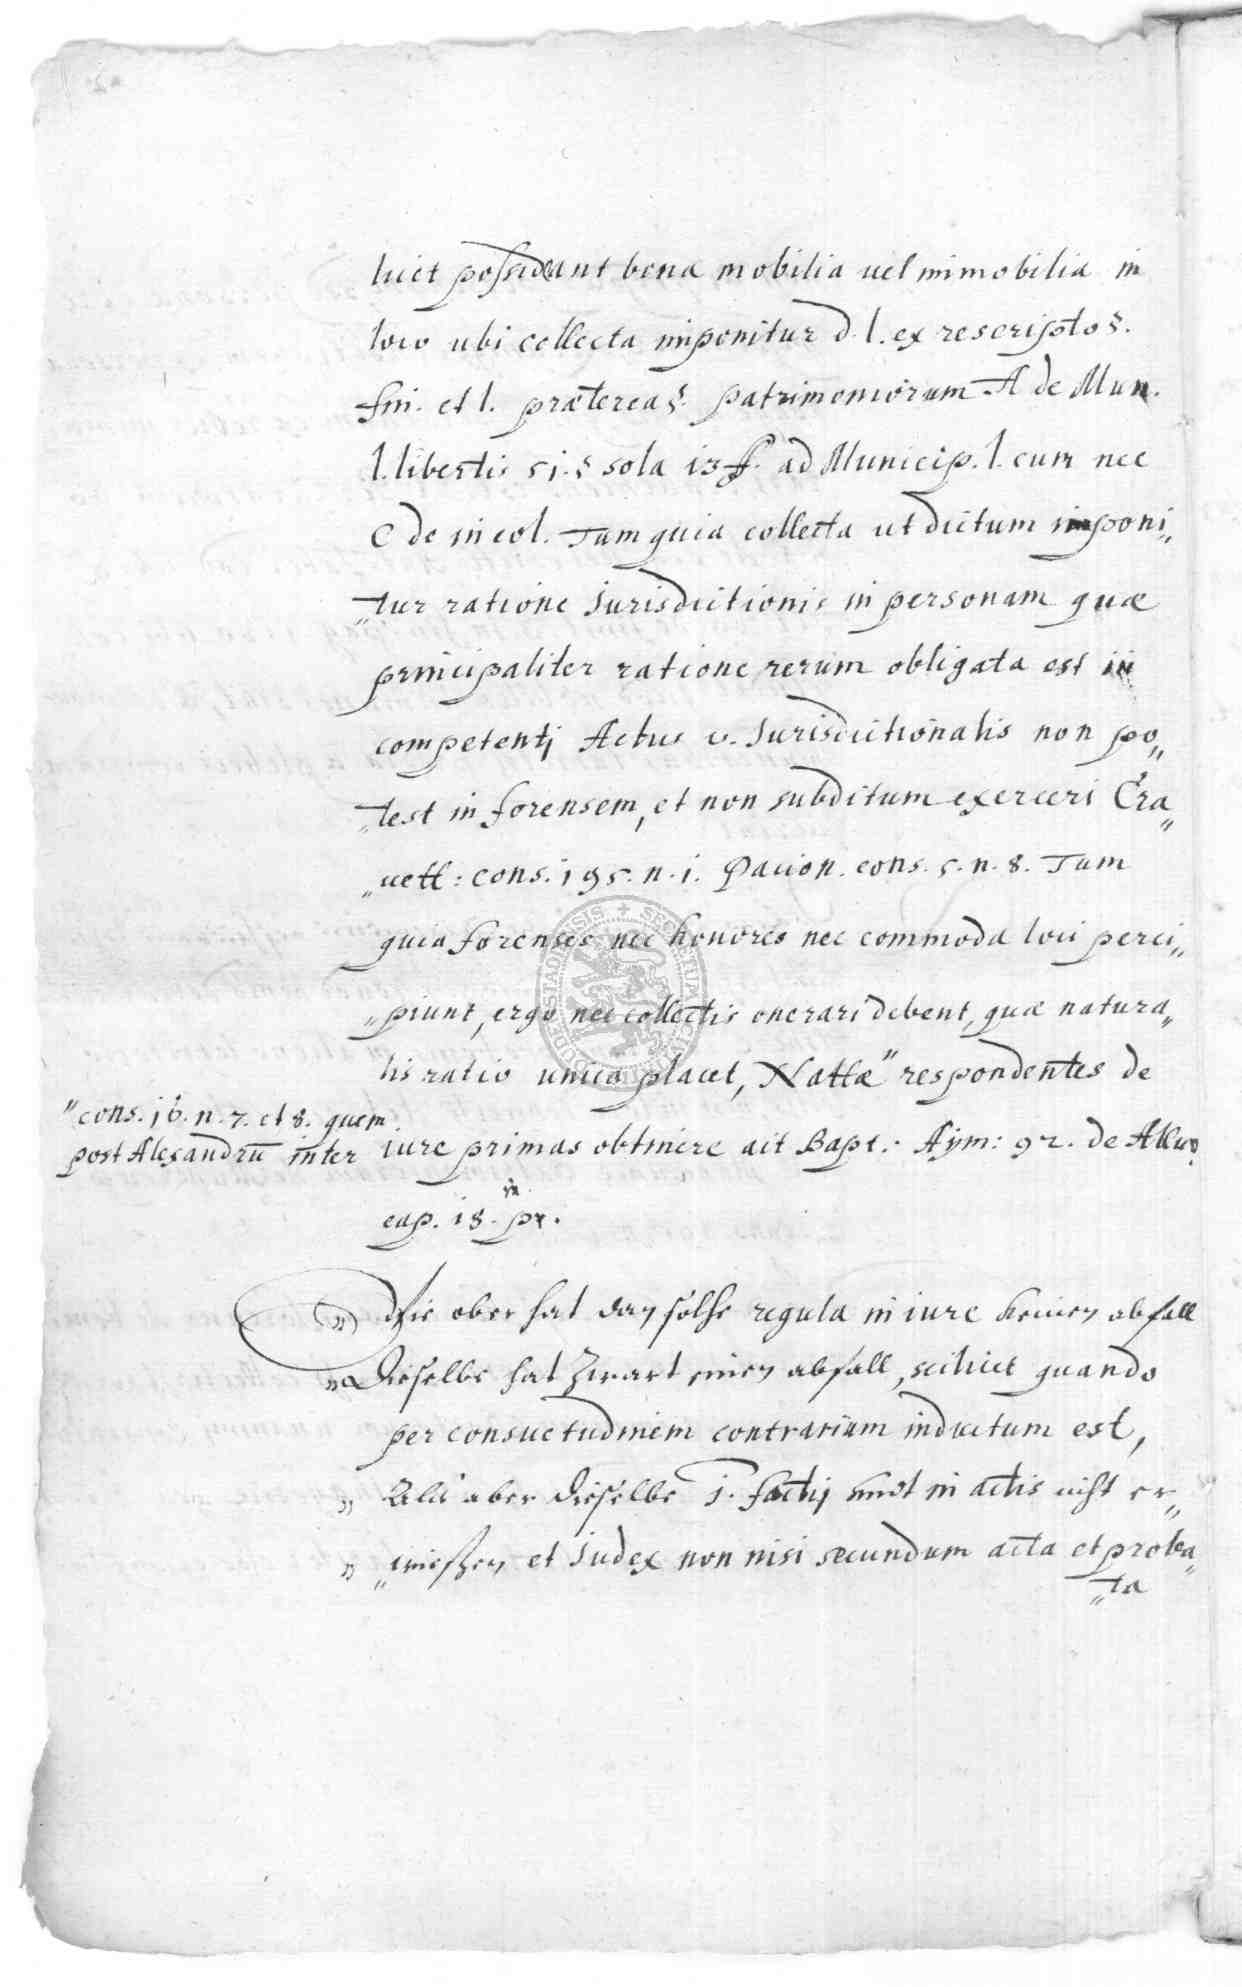 licet possideant bona mobilia vel immobilia in
loco ubi collecta imponitur d. l. ex rescripto §.
fin. et l. praeterea §. patrimoniorum ff de Mun.
l. libertis 51. § sola 13 ff. ad Municip. l. cum nec
C de incol. Tum quia collecta ut dictum imponi„
„tur ratione Jurisdictionis in personam quae
principaliter ratione rerum obligata est in
competenti Actus v. Jurisdictionalis non po„
„test in forensem, et non subditum exerceri Cra„
„vett: cons. 195. n. 1. Pacion. cons. 5. n. 8. Tum
quia forenses nec honores nec commoda loci perci„
„piunt, ergo nec collectis onerari debent, quae natura„
lis ratio unico placet, Nattae" respondentes de
"cons. 16. n. 7. et 8. quem
post Alexandrū inter
iure primas obtinere ait Bapt: Aym: 92. de Alluv.
cap. 18. in pr.
„ Hie ober hat dan solche regula in iure keinen abfall
„ dieselbe hat zwart einen abfall, scilicet quando
per consuetudinem contrarium inductum est,
„ Als aber dieselbe j. factij undt in actis nicht er„
„ „wiesen et Judex non nisi secundum acta et proba„
„ta
SIGILLUM